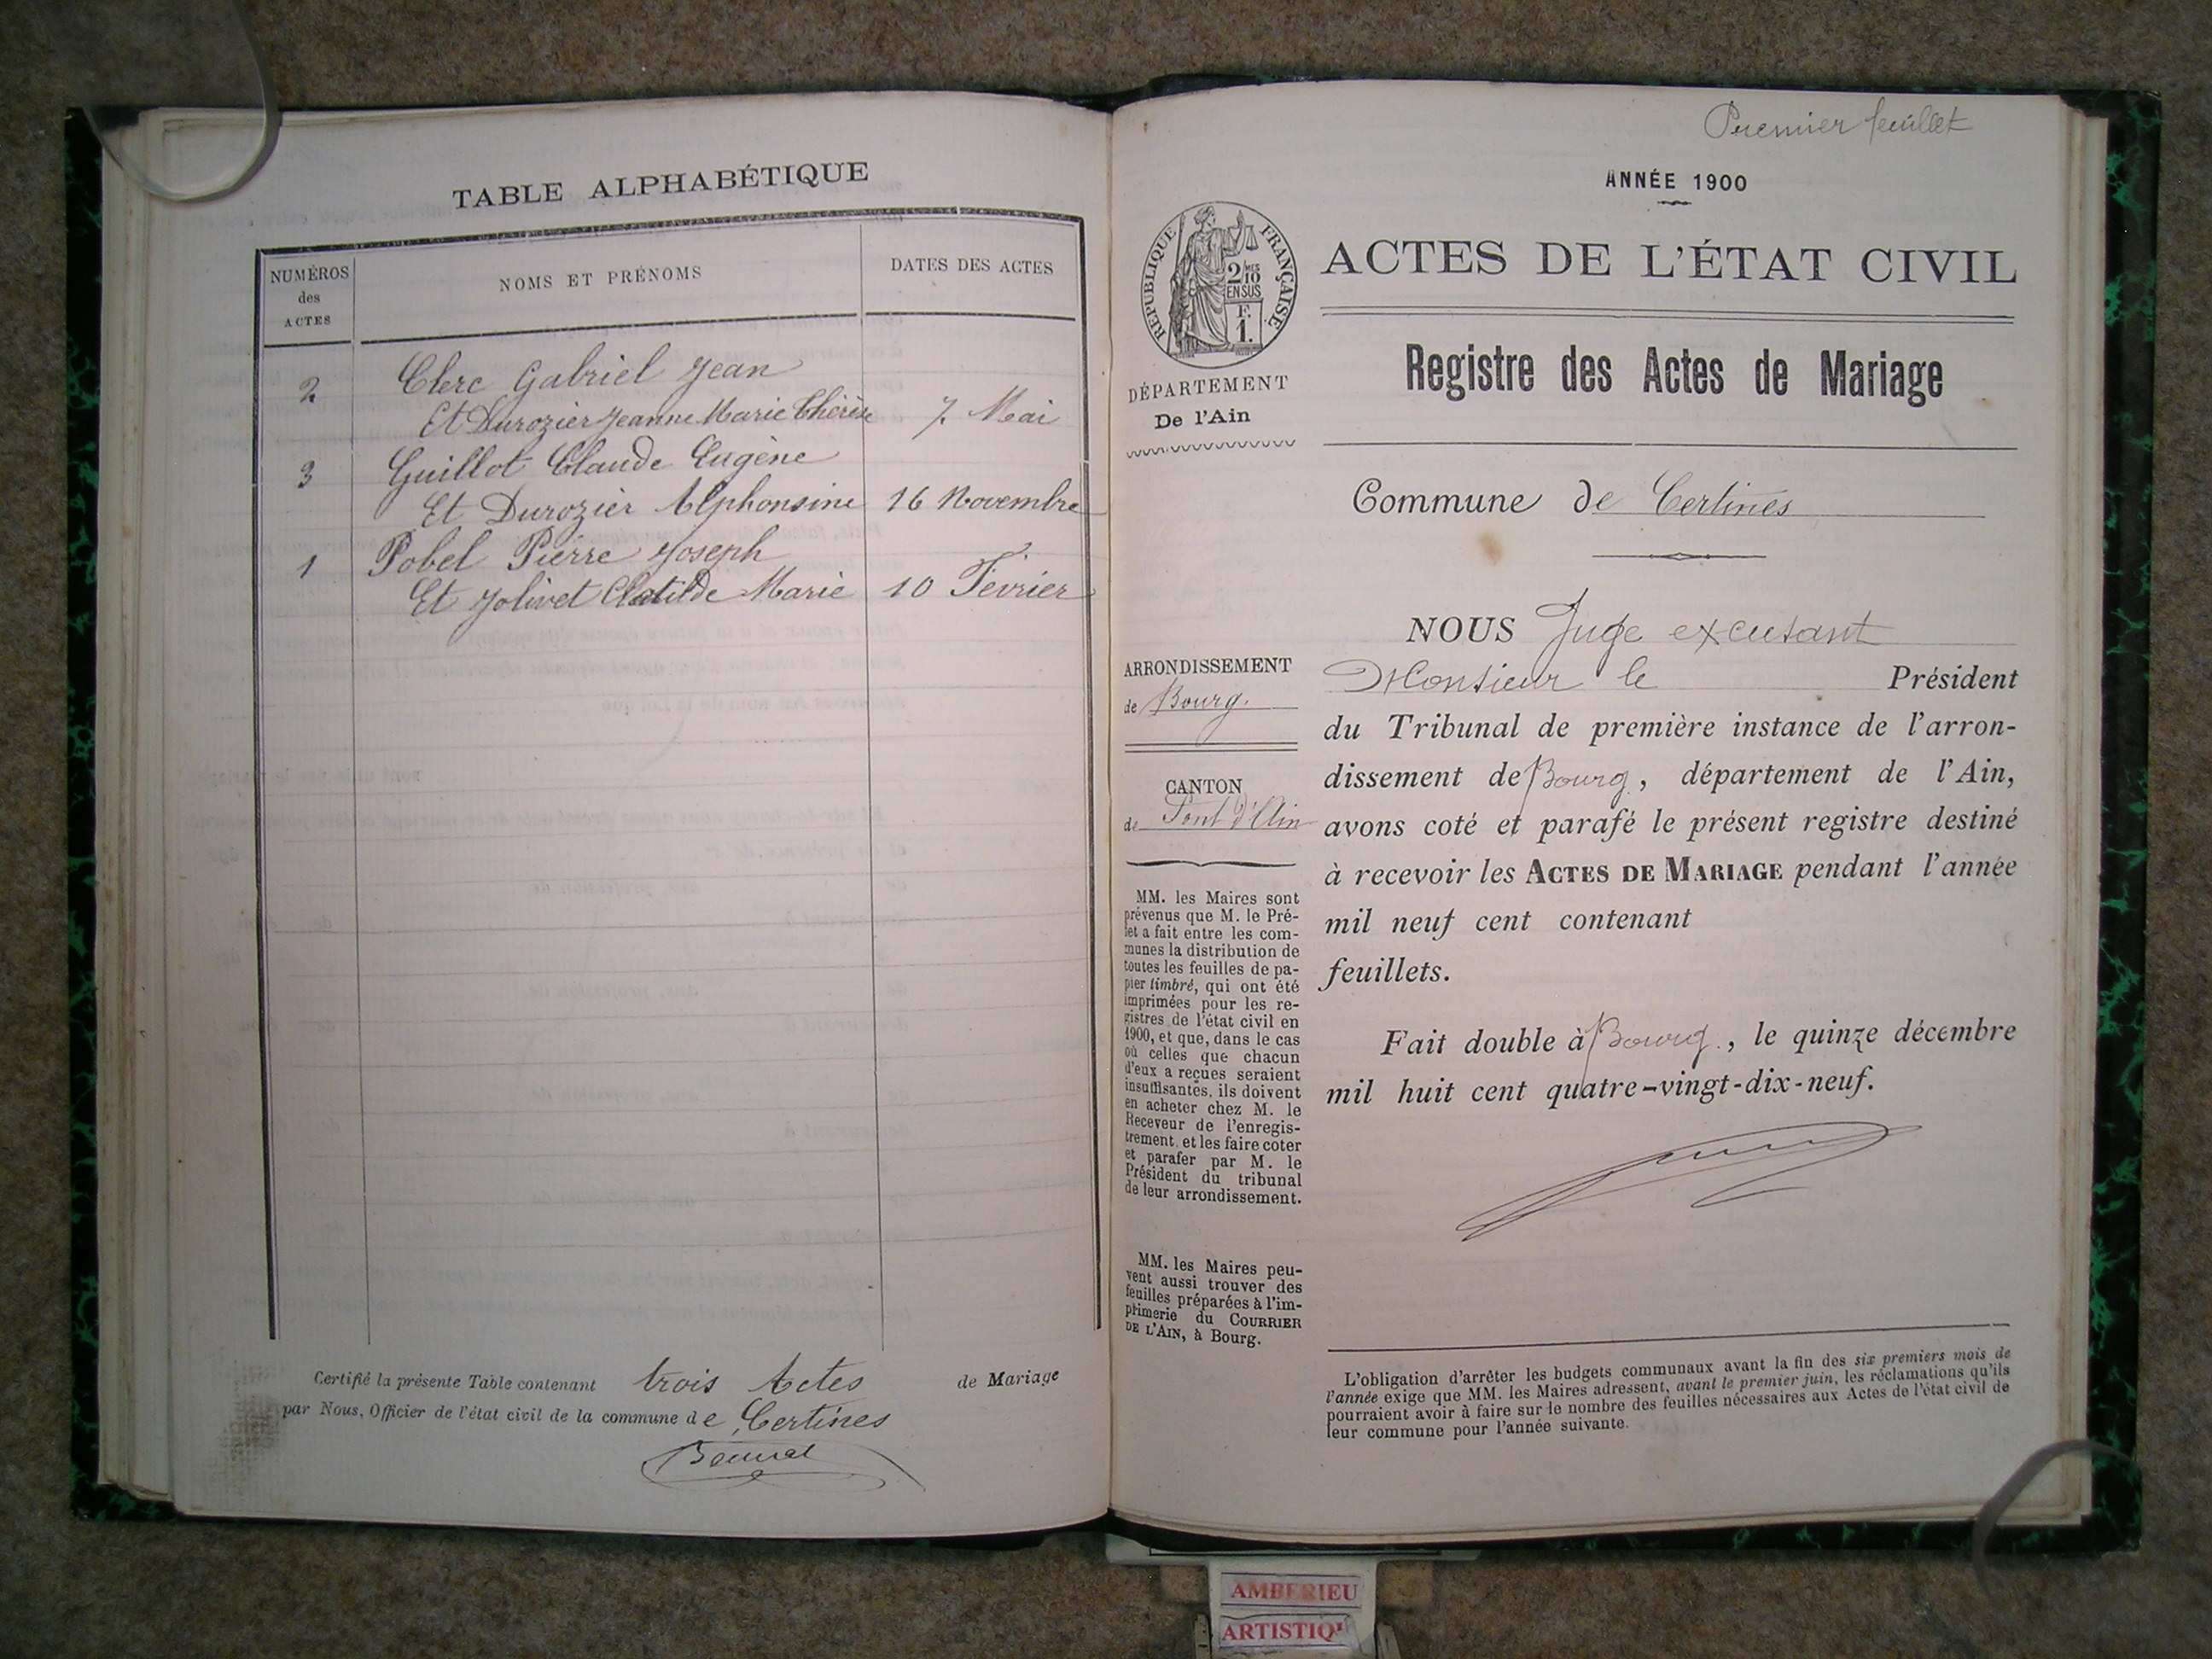 TABLE ALPHABÉTIQUE
NUMÉROS des ACTES
NOMS ET PRÉNOMS
DATES DES ACTES
2 Clerc Gabriel Jean
Et Durozier Jeanne Marie Thérèse 7 Mai
3 Guillot Claude Eugène
Et Durozier Alphonsine 16 Novembre
1 Pobel Pierre Joseph
Et Jolivet Clotilde Marie 10 Février
Certifié la présente Table contenant trois Actes de Mariage
par Nous, Officier de l'état civil de la commune de Certines
Premier feuillet
ANNÉE 1900
RÉPUBLIQUE FRANÇAISE
2/10 MES
EN SUS
F.
1.
ACTES DE L'ÉTAT CIVIL
Registre des Actes de Mariage
DÉPARTEMENT
De l'Ain
Commune de Certines
ARRONDISSEMENT
de Bourg.
CANTON
de Pont d'Ain
MM. les Maires sont
prévenus que M. le Pré-
fet a fait entre les com-
munes la distribution de
toutes les feuilles de pa-
pier timbré, qui ont été
imprimées pour les re-
gistres de l'état civil en
1900, et que, dans le cas
où celles que chacun
d'eux a reçues seraient
insuffisantes, ils doivent
en acheter chez M. le
Receveur de l'enregis-
trement, et les faire coter
et parafer par M. le
Président du tribunal
de leur arrondissement.
MM. les Maires peu-
vent aussi trouver des
feuilles préparées à l'im-
primerie du COURRIER
DE L'AIN, à Bourg.
NOUS Juge excusant
Monsieur le Président
du Tribunal de première instance de l'arron-
dissement de Bourg, département de l'Ain,
avons coté et parafé le présent registre destiné
à recevoir les ACTES DE MARIAGE pendant l'année
mil neuf cent contenant
feuillets.
Fait double à Bourg., le quinze décembre
mil huit cent quatre-vingt-dix-neuf.
L'obligation d'arrêter les budgets communaux avant la fin des six premiers mois de
l'année exige que MM. les Maires adressent, avant le premier juin, les réclamations qu'ils
pourraient avoir à faire sur le nombre des feuilles nécessaires aux Actes de l'état civil de
leur commune pour l'année suivante.
AMBERIEU
ARTISTIQU